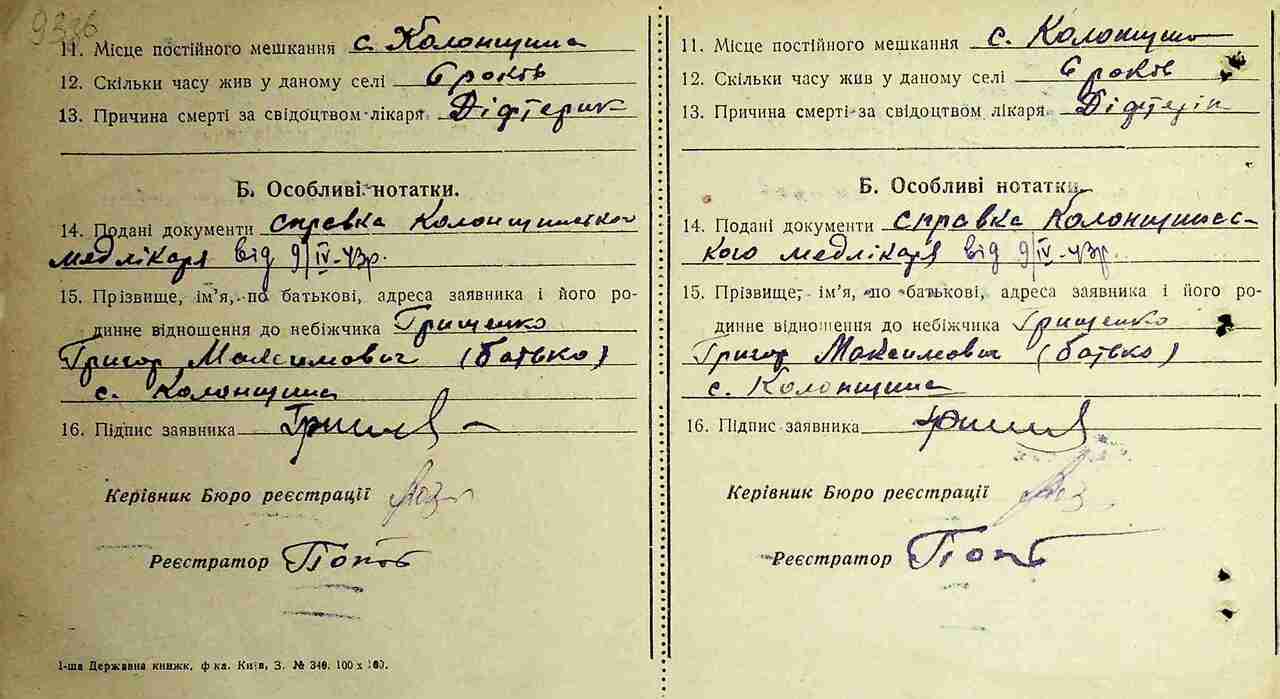 9336
11. Місце постійного мешкання с. Колонщина
12. Скільки часу жив у даному селі 6 років
13. Причина смерті за свідоцтвом лікаря Діфтерик
Б. Особливі нотатки.
14. Подані документи справка Колонщинського
медлікаря від 9/IV-43р.
15. Прізвище, ім’я, по батькові, адреса заявника і його ро-
динне відношення до небіжчика Грищенко
Григор Максимович (батько)
с. Колонщина
16. Підпис заявника
Керівник Бюро реєстрації
Реєстратор
1-ша Державна книжк. ф-ка. Київ, З. № 340. 100 х 100.
11. Місце постійного мешкання с. Колонщина
12. Скільки часу жив у даному селі 6 років
13. Причина смерті за свідоцтвом лікаря Діфтерік
Б. Особливі нотатки.
14. Подані документи справка Колонщинс-
кого медлікаря від 9/IV-43р.
15. Прізвище, ім’я, по батькові, адреса заявника і його ро-
динне відношення до небіжчика Грищенко
Григор Максимович (батько)
с. Колонщина
16. Підпис заявника
Керівник Бюро реєстрації
Реєстратор